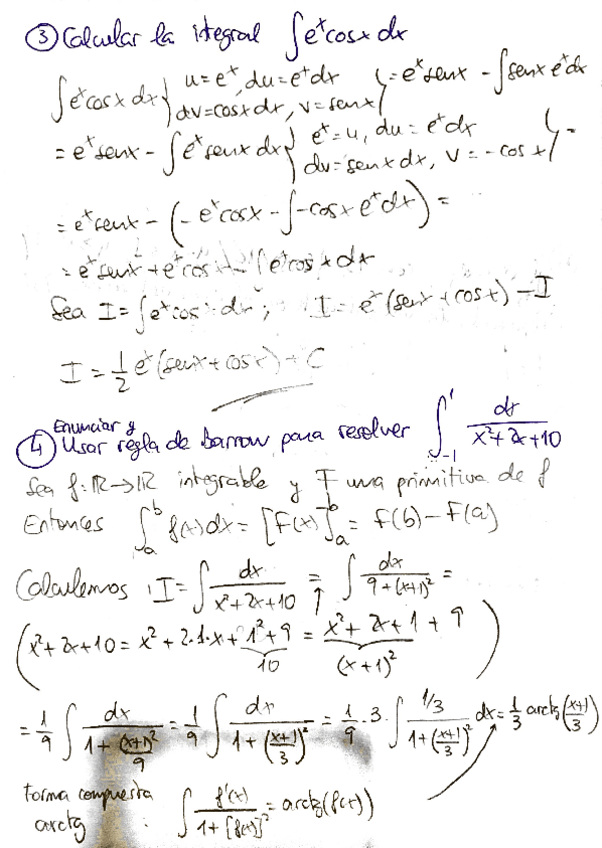 ③ Calcular la integral ∫eˣcosx dx
∫eˣcosx dx { u=eˣ, du=eˣdx
dv=cosxdx, v=senx } = eˣsenx - ∫senx eˣdx
= eˣsenx - ∫eˣsenx dx { eˣ=u, du=eˣdx
dv=senxdx, v=-cosx } =
= eˣsenx - (-eˣcosx - ∫-cosx eˣdx) =
= eˣsenx + eˣcosx - ∫eˣcosxdx
Sea I=∫eˣcosx dx; I = eˣ(senx+cosx) - I
I = 1/2 eˣ(senx+cosx) + C
④ Enunciar y
Usar regla de Barrow para resolver ∫₋₁¹ dx/(x²+2x+10)
Sea f:ℝ→ℝ integrable y F una primitiva de f
Entonces ∫ₐᵇ f(x)dx = [F(x)]ₐᵇ = F(b)-F(a)
Calculemos I=∫ dx/(x²+2x+10) = ∫ dx/(9+(x+1)²) =
(x²+2x+10 = x²+2·1·x+1²+9 = x²+2x+1+9)
10 (x+1)²
= 1/9 ∫ dx/(1+(x+1)²/9) = 1/9 ∫ dx/(1+((x+1)/3)²) = 1/9·3·∫ (1/3)/(1+((x+1)/3)²) dx = 1/3 arctg((x+1)/3)
forma compuesta
arctg : ∫ f'(x)/(1+[f(x)]²) = arctg(f(x))